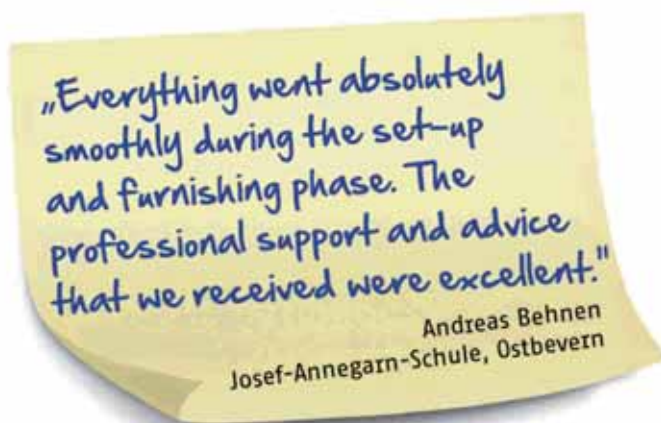 „Everything went absolutely
smoothly during the set-up
and furnishing phase. The
professional support and advice
that we received were excellent."
Andreas Behnen
Josef-Annegarn-Schule, Ostbevern